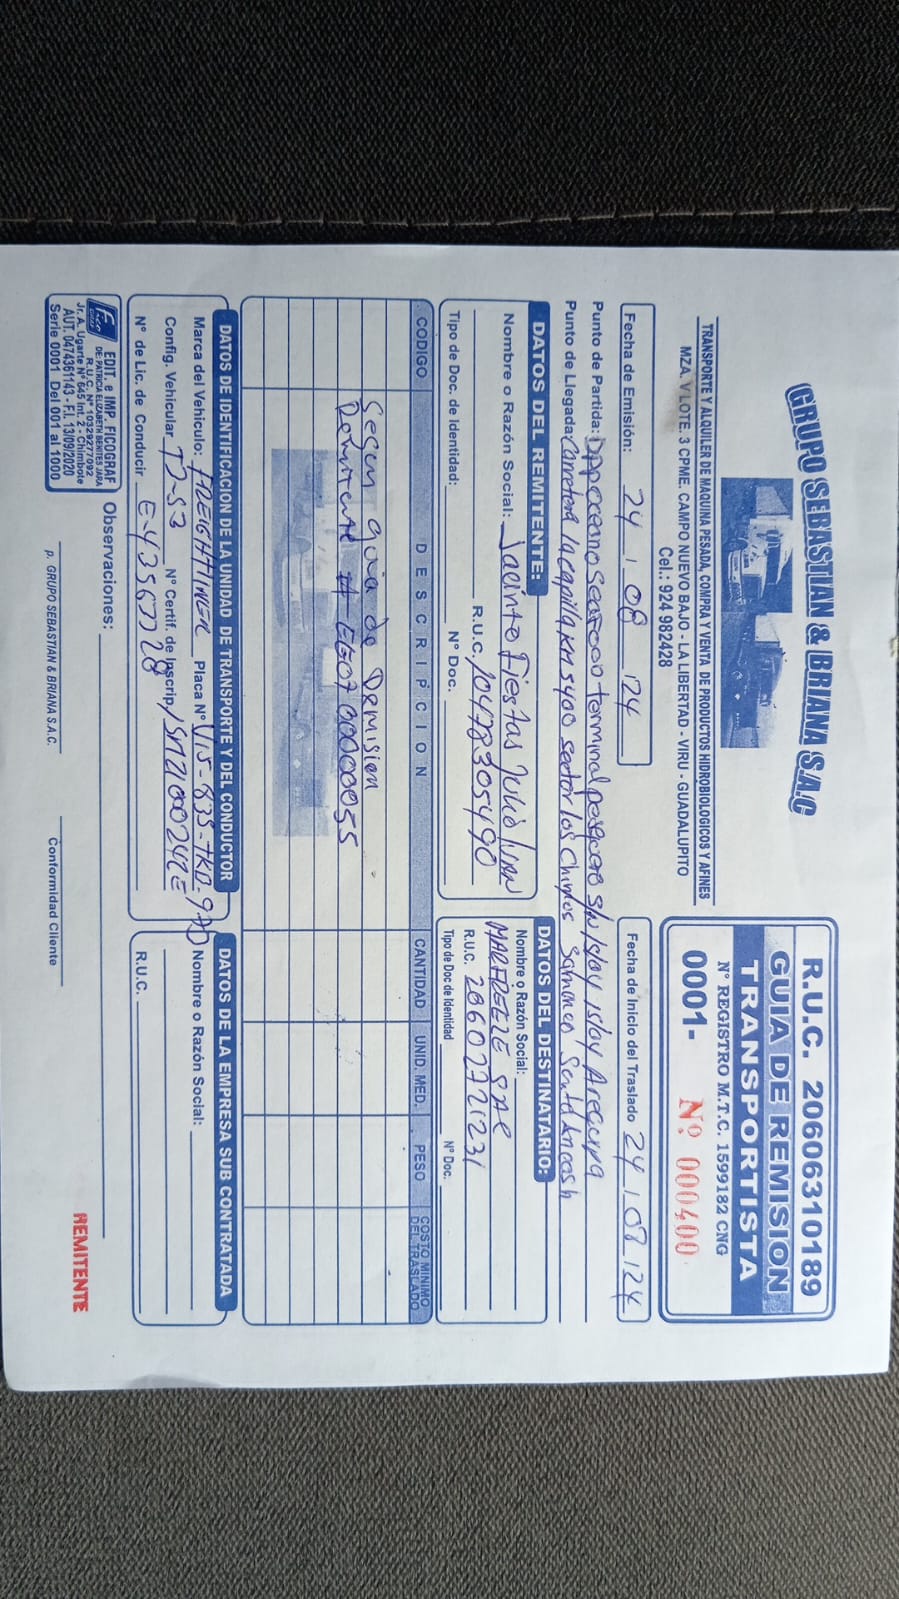 GRUPO SEBASTIAN & BRIANA S.A.C
TRANSPORTE Y ALQUILER DE MAQUINA PESADA, COMPRA Y VENTA DE PRODUCTOS HIDROBIOLOGICOS Y AFINES
MZA. V LOTE. 3 CPME. CAMPO NUEVO BAJO - LA LIBERTAD - VIRU - GUADALUPITO
Cel.: 924 982428
R.U.C. 20606310189
GUIA DE REMISION
TRANSPORTISTA
N° REGISTRO M.T.C. 1599182 CNG
0001- Nº 000400
Fecha de Emisión: 24 / 08 / 24
Fecha de Inicio del Traslado 24 / 08 / 24
Punto de Partida: terminal pesquero s/n Islay Islay Arequipa
Punto de Llegada: Carretera la capilla km 5400 sector los Chimos Samanco Santa Ancash
DATOS DEL REMITENTE:
Nombre o Razón Social: Jacinto Fiestas Julio Iván
R.U.C. 10478305490
Tipo de Doc. de Identidad: N° Doc.
DATOS DEL DESTINATARIO:
Nombre o Razón Social:
MARFREEZE SAC
R.U.C. 20602721231
Tipo de Doc de Identidad N° Doc.
CODIGO DESCRIPCION CANTIDAD UNID. MED. PESO COSTO MINIMO DEL TRASLADO
Segun guia de Remision
Remitente # EG07 00000055
DATOS DE IDENTIFICACION DE LA UNIDAD DE TRANSPORTE Y DEL CONDUCTOR
Marca del Vehiculo: FREIGHTLINER Placa N° V15-835-TKD-970
Config. Vehicular T3-S3 N° Certif. de Inscrip.
N° de Lic. de Conducir E-43567728
DATOS DE LA EMPRESA SUB CONTRATADA
Nombre o Razón Social:
R.U.C.
Fico
EDIT. e IMP. FICOGRAF
DE: PATRICIA ELIZABETH BENITES JARA
R.U.C. N° 10329277092
Jr. A. Ugarte N° 645 Int. 2 - Chimbote
AUT. 0474361143 - F.I. 13/09/2020
Serie 0001 Del 001 al 1000
Observaciones:
p. GRUPO SEBASTIAN & BRIANA S.A.C.
Conformidad Cliente
REMITENTE